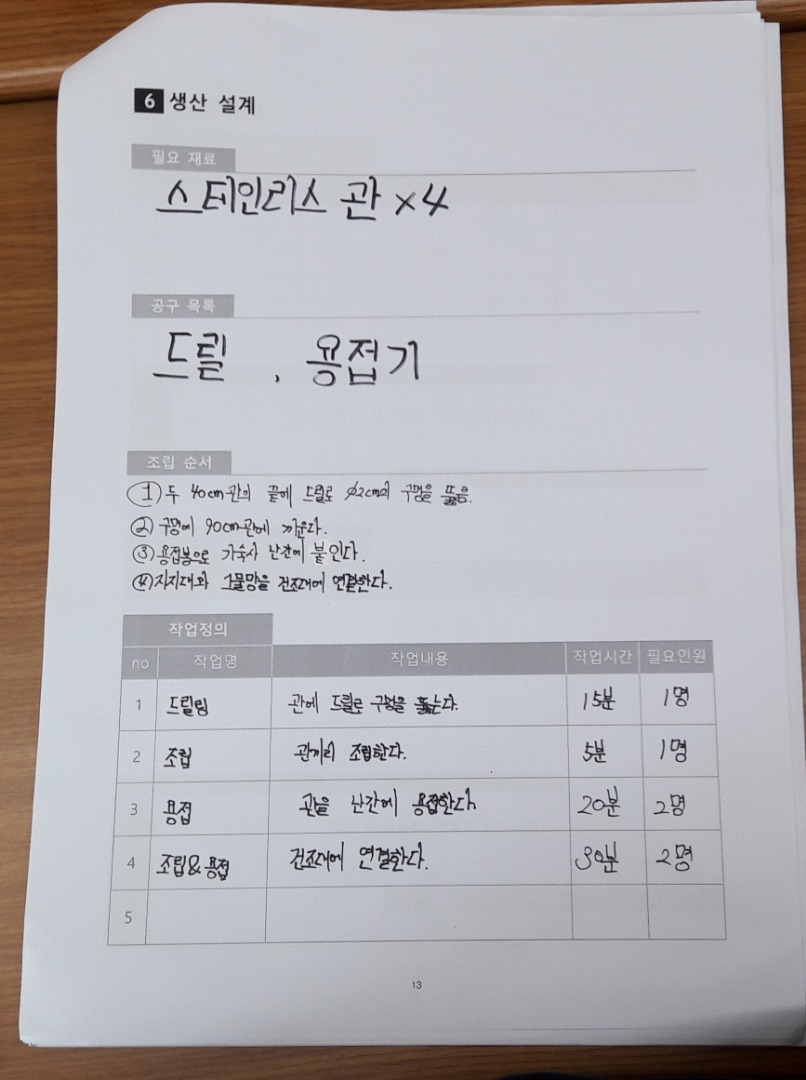 6 생산 설계
필요 재료
스테인리스 관 ×4
공구 목록
드릴 , 용접기
조립 순서
① 두 40cm관의 끝에 드릴로 ø2cm의 구멍을 뚫음.
② 구멍에 90cm관에 끼운다.
③ 용접봉으로 기숙사 난간에 붙인다.
④ 지지대와 그물망을 건조대에 연결한다.
작업정의
no 작업명 작업내용 작업시간 필요인원
1 드릴링 관에 드릴로 구멍을 뚫는다. 15분 1명
2 조립 관끼리 조립한다. 5분 1명
3 용접 관을 난간에 용접한다. 20분 2명
4 조립&용접 건조대에 연결한다. 30분 2명
5
13